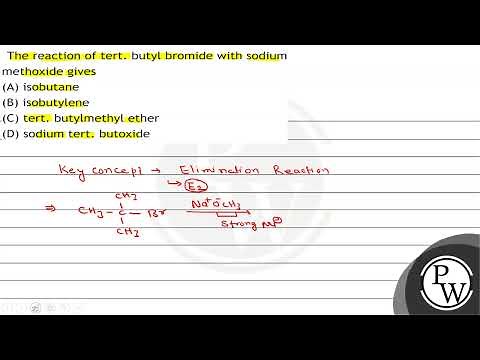 The reaction of tert. butyl bromide with sodium
methoxide gives
(A) isobutane
(B) isobutylene
(C) tert. butylmethyl ether
(D) sodium tert. butoxide
Key concept → Elimination Reaction
↳ E2
CH3
⇒ CH3 - C - Br Na+O-CH3
CH3 Strong
P
W